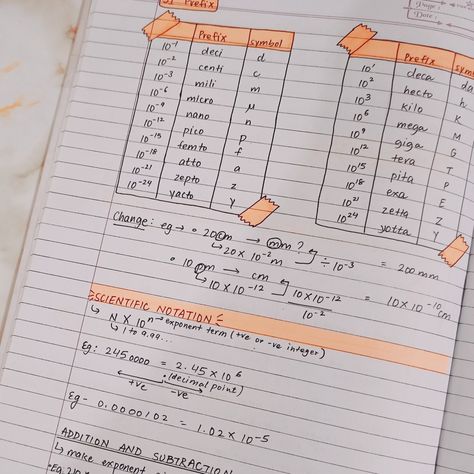 SI Prefix
Page:
Date:
Prefix symbol
10⁻¹ deci d
10⁻² centi c
10⁻³ mili m
10⁻⁶ micro μ
10⁻⁹ nano n
10⁻¹² pico p
10⁻¹⁵ femto f
10⁻¹⁸ atto a
10⁻²¹ zepto z
10⁻²⁴ yacto y
Prefix sym
10¹ deca da
10² hecto h
10³ kilo K
10⁶ mega M
10⁹ giga G
10¹² tera T
10¹⁵ pita P
10¹⁸ exa E
10²¹ zetta Z
10²⁴ yotta Y
Change: eg → • 20cm → mm ?
↳ 20 × 10⁻² m ÷ 10⁻³ = 200 mm
• 10 pm → cm
↳ 10 × 10⁻¹² 10 × 10⁻¹² / 10⁻² = 10 × 10⁻¹⁰ cm
SCIENTIFIC NOTATION
↳ N × 10ⁿ → exponent term (+ve or -ve integer)
↳ 1 to 9.99...
Eg: 2450000 = 2.45 × 10⁶
← • (decimal point) →
+ve -ve
Eg - 0.0000102 = 1.02 × 10⁻⁵
ADDITION AND SUBTRACTION
↳ make exponent